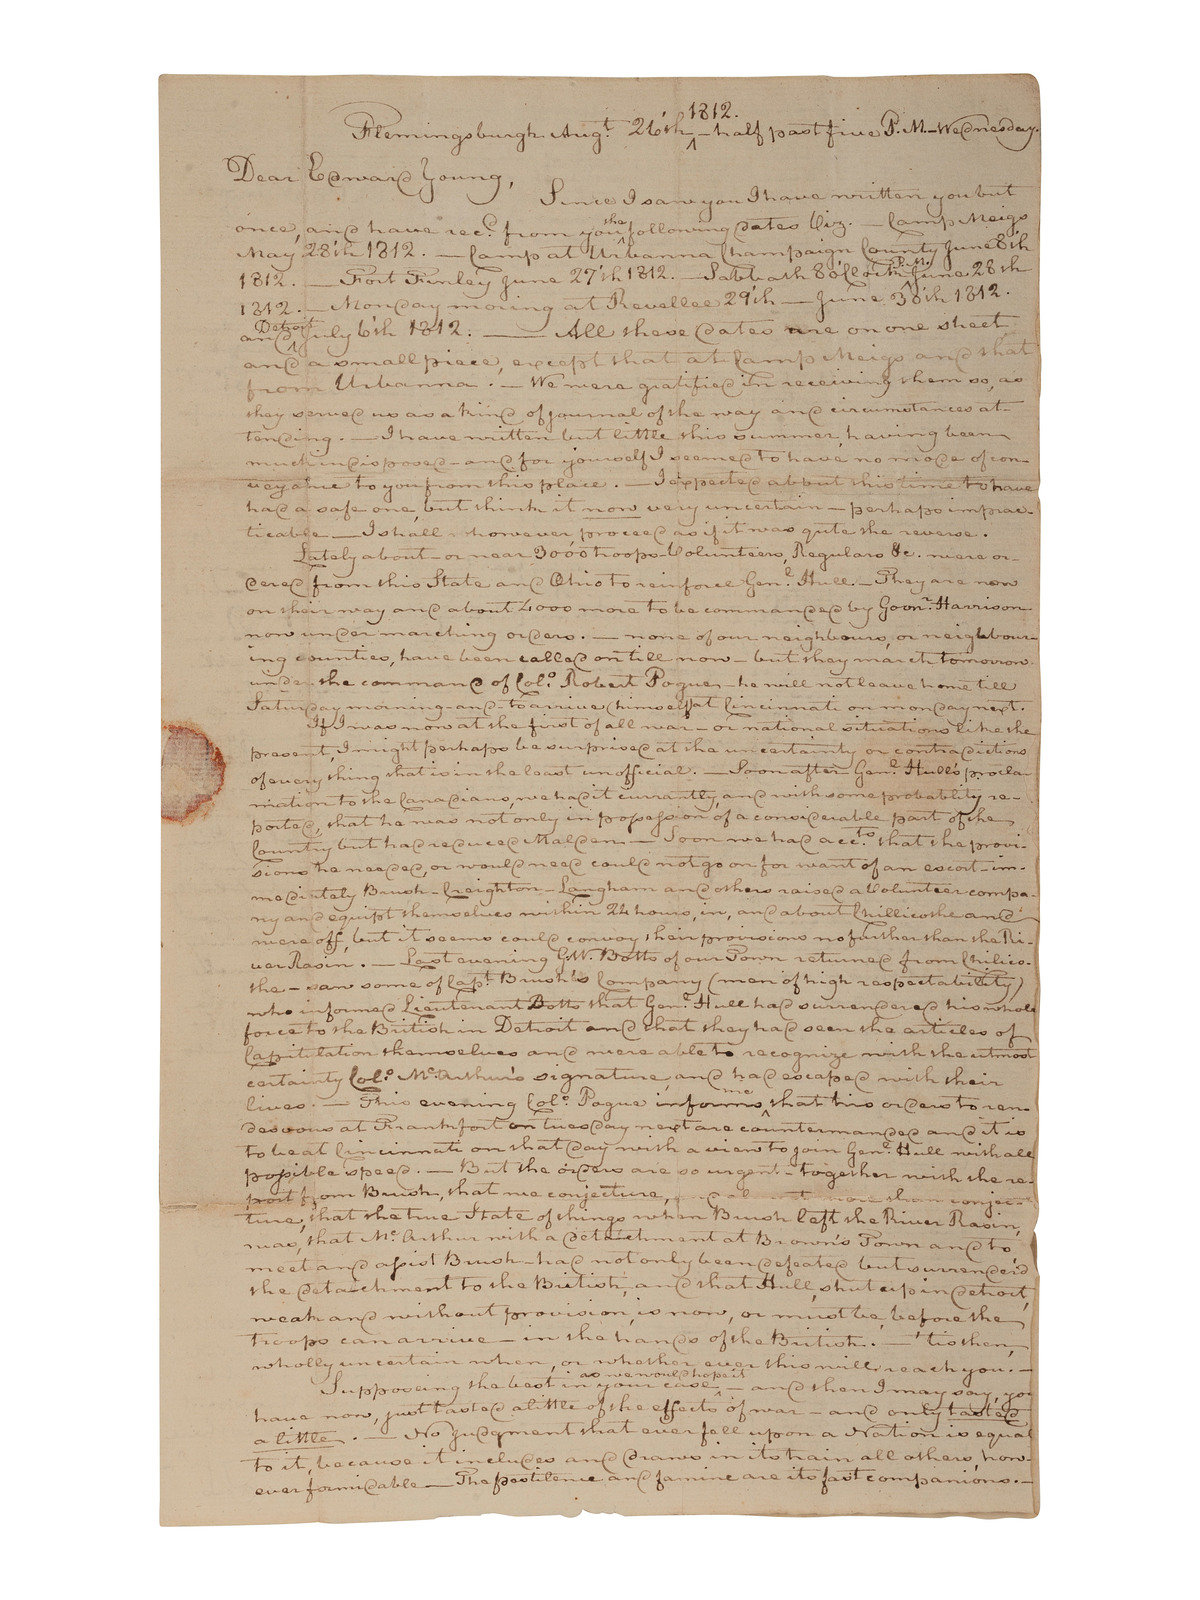 Flemingsburgh Augt. 26'th 1812. – half past five P.M – Wednesday.
Dear Edward Young,
Since I saw you I have written you but
once, and have recd. from you the following dates Viz. — Camp Meigs
May 28'th 1812. — Camp at Urbanna Champaign County June 8'th
1812. — Fort Finley June 27'th 1812. — Sabbath 8 o'Clock P.M. June 28th
1812. — Monday morning at Revellee 29'th — June 30'th 1812.
and Detroit July 6'th 1812. — All these dates are on one sheet
and a small piece, except that at Camp Meigs and that
from Urbanna. — We were gratified in receiving them so, as
they served us as a kind of journal of the way and circumstances at-
tending. — I have written but little this summer, having been
much indisposed – and for yourself I seemed to have no mode of con-
veyance to you from this place. — I expected about this time to have
had a safe one, but think it now very uncertain – perhaps imprac-
ticable — I shall however, proceed as if it was quite the reverse.
Lately about – or near 3000 troops – Volunteers, Regulars &c. were or-
dered from this State and Ohio to reinforce Genl. Hull. – They are now
on their way and about 4000 more to be commanded by Govnr. Harrison
now under marching orders. — none of our neighbours, or neighbour-
ing counties, have been called on till now – but they march tomorrow
under the command of Colo. Robert Pogue – he will not leave home till
Saturday morning – and to arrive himself at Cincinnati on monday next.
If I was now at the first of all war – or national situations like the
present, I might perhaps be surprised at the uncertainty or contradictions
of every thing that is in the least unofficial. — Soon after Genl. Hull's procla-
mation to the Canadians, we had it currantly, and with some probablity re-
ported, that he was not only in possession of a considerable part of the
Country but had reduced Malden. — Soon we had acc.ts that the provi-
sions he needed, or would need could not go on for want of an escort – im-
mediately Brush – Creighton – Langham and others raised a Volunteer compa-
ny and equipt themselves within 24 hours, in, and about Chillicothe and
were off, but it seems could convoy their provisions no further than the Ri-
ver Rasin. — Last evening G.W. Botts of our Town returned from Chilico-
the – saw some of Capt. Brush's Company (men of high respectability)
who informed Lieutenant Botts that Genl. Hull had surrendered his whole
force to the British in Detroit and that they had seen the articles of
Capitulation themselves and were able to recognize with the utmost
certainty Colo. McArthur's signature and had escaped with their
lives. — This evening Colo. Pogue informs me, that his orders to ren-
desvous at Frankfort on tuesday next are countermanded and it is
to be at Cincinnati on that day with a view to join Genl. Hull with all
possible speed. — But the orders are so urgent – together with the re-
port from Brush, that we conjecture, more than conjec-
ture, that the true State of things when Brush left the River Rasin,
was, that McArthur with a detachment at Brown's Town and to
meet and assist Brush – had not only been defeated but surrender'd
the detachment to the British, and that Hull, shut up in detroit,
weak and without provision, is now, or must be, before the
troops can arrive – in the hands of the British. — 'tis then,
wholly uncertain when, or whether ever this will reach you. —
Supposeing the best in your case, as we would hope it – and then I may say, you
have now, just tasted a little of the effects of war – and only tasted
a little. — No Judgment that ever fell upon a Nation is equal
to it, because it includes and draws in its train all others, how-
ever formidable — The pestilence and famine are its fast companions. —